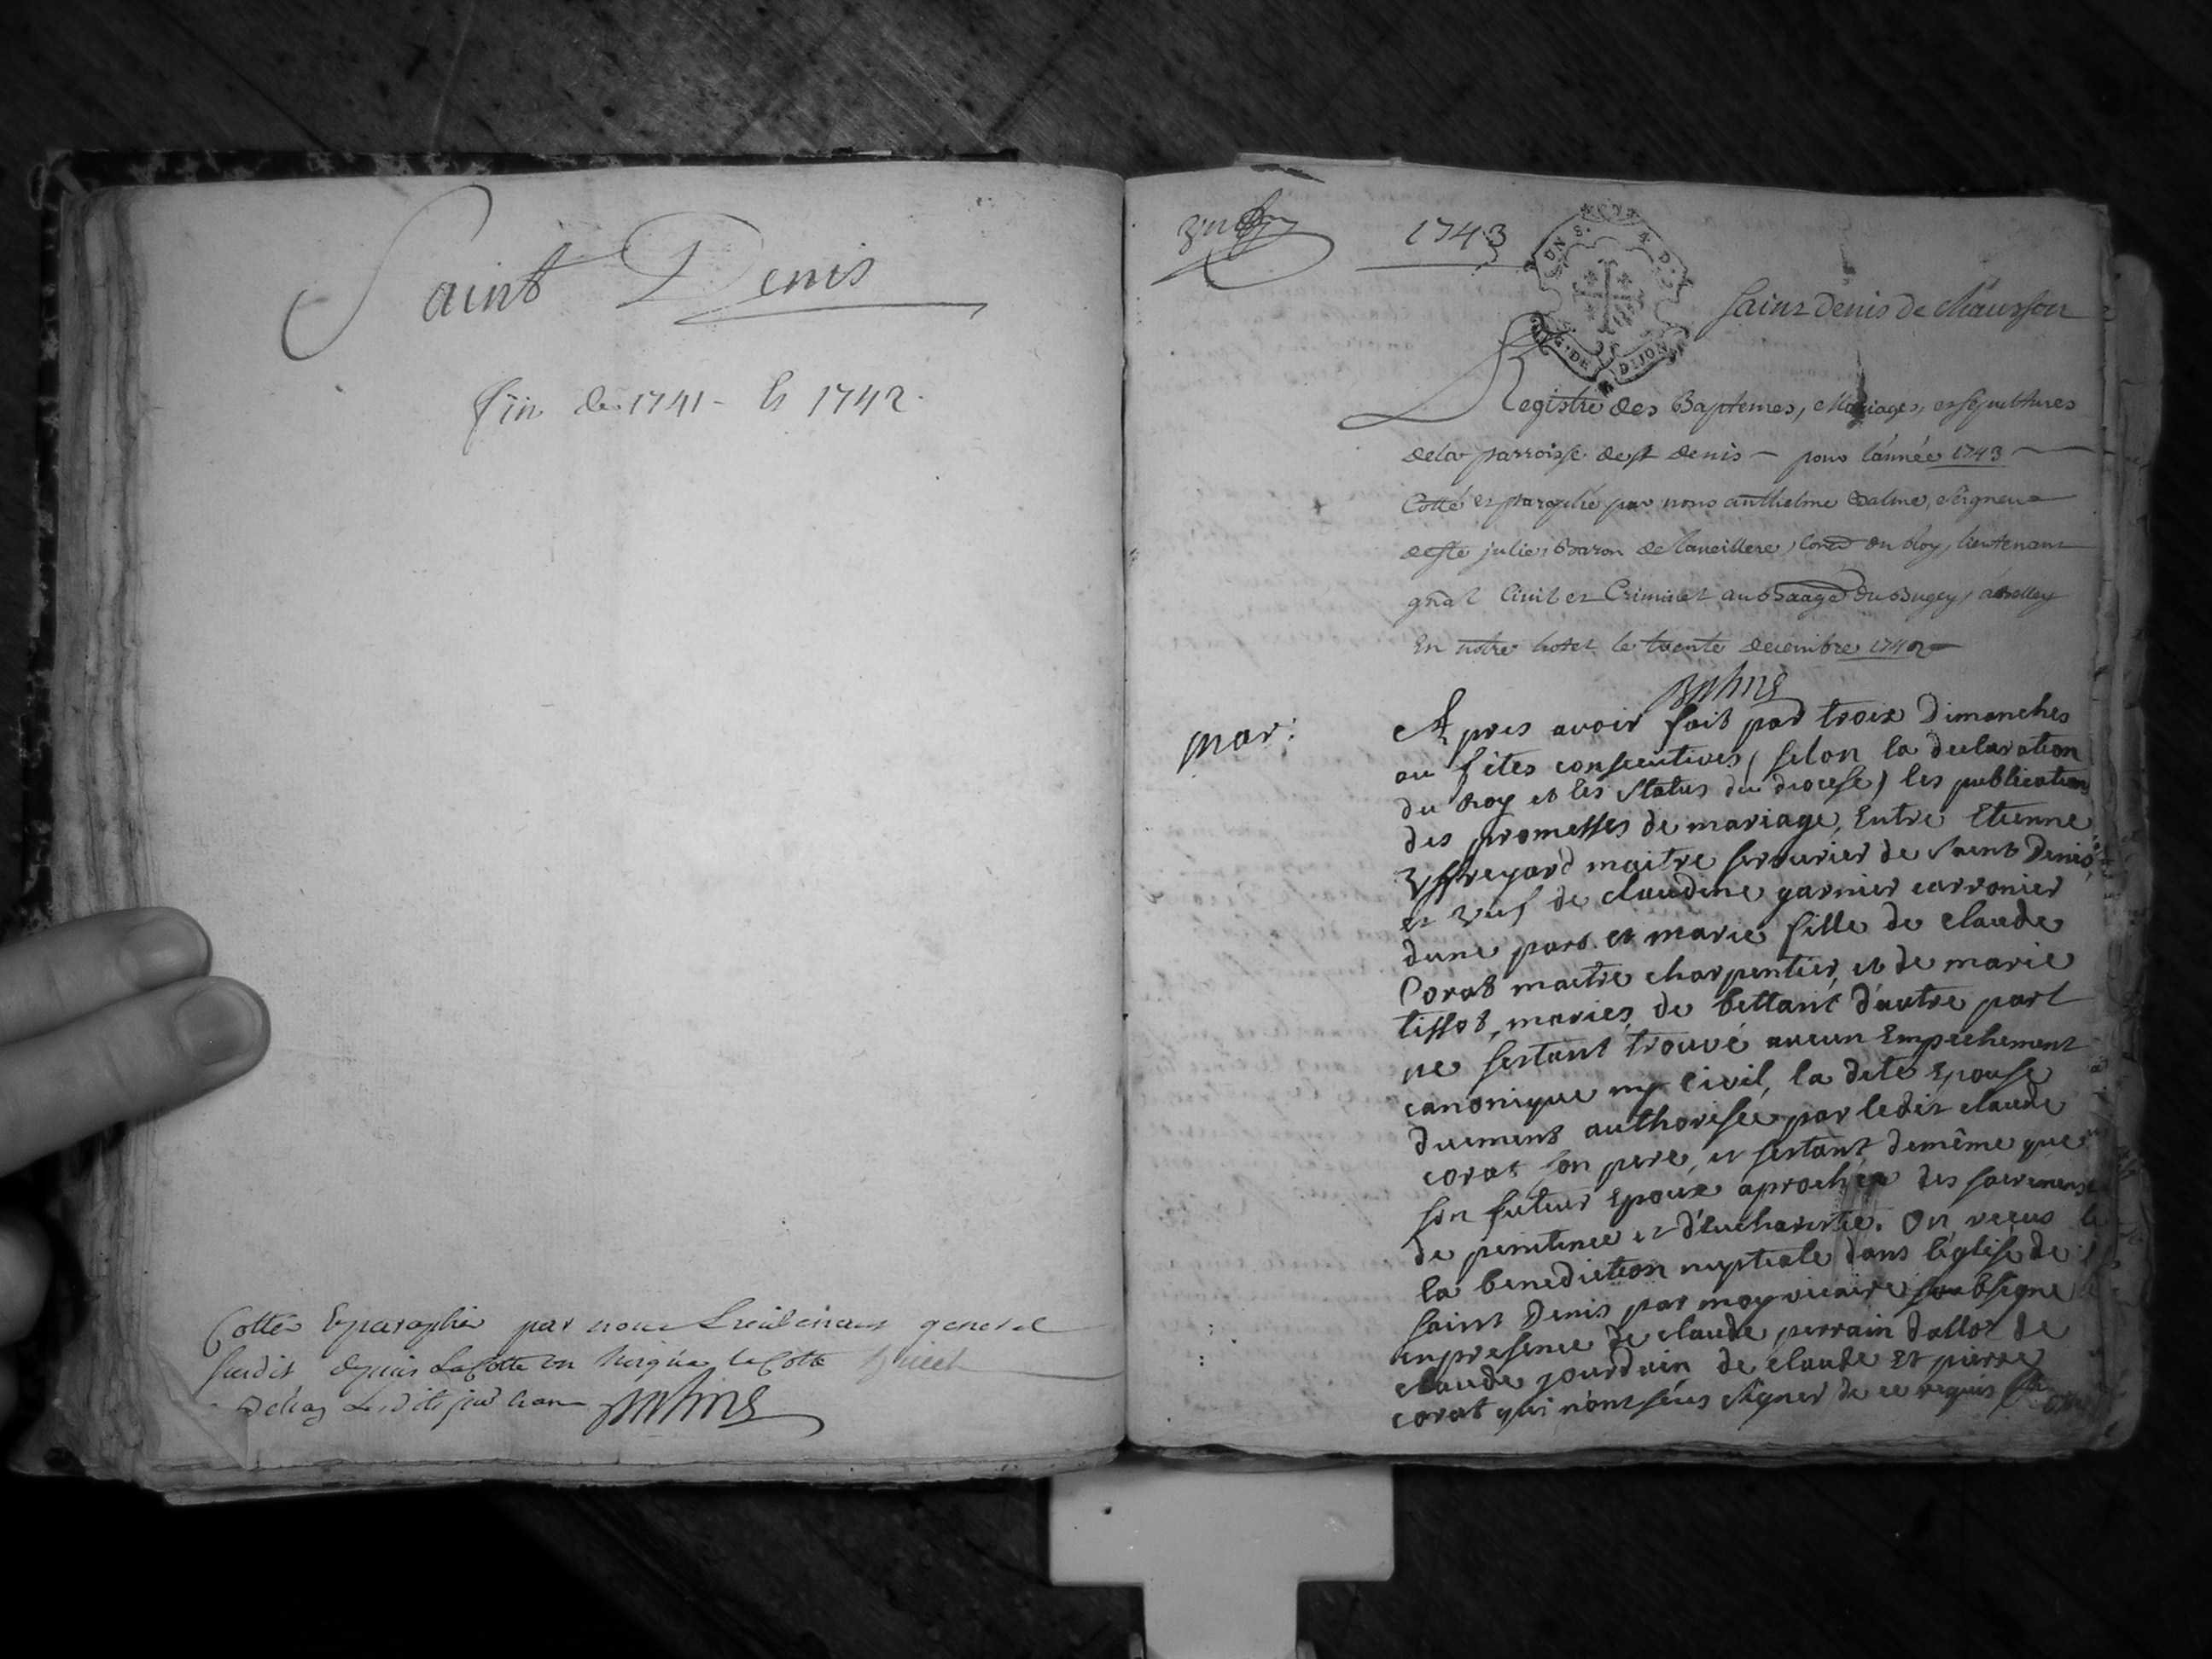 Saint Denis
fin de 1741 - Et 1742.
Cotté Et paraphé par nous Lieutenant general
susdit depuis la Cotte un jusqu'a la Cotte
1743
Saint Denis de Chausson
UN S. 4. D.
G. DE DIJON
Registre des Baptemes, Mariages, et sepultures
de la parroisse de st denis - pour l'année 1743
Cotté et paraphé par nous anthelme Balme, seigneur
de ste julie, Baron de Conser du Roy, lieutenant
gnal Civil et Criminel au Baage du Bugey, a belley
En notre hotel le trente decembre 1742
mar:
Apres avoir fait par troix Dimanches
ou fêtes consecutives (selon la declaration
du Roy et les Status du diocese) les publications
des promesses de mariage, Entre Etienne
maitre serrurier de Saint Denis,
et veuf de claudine garnier carronier
dune part. et marie fille de claude
Corat maitre charpentier, et de marie
tissot, mariés, de bettant d'autre part
ne sestant trouvé aucun Empechement
canonique ny civil, la dite Epouse
duement authorisée par ledit claude
corat son pere, et sestant demême que
son futur Epoux aprochéz des sacremens
de penitence et d'Eucharistie. On reçus
la benediction nuptiale dans l'église de
saint Denis par moy vicaire soubsigné
enpresence de claude perrain dallot de
claude jourdain de claude Et pierre
corat qui n'ont sçeus signer de ce requis